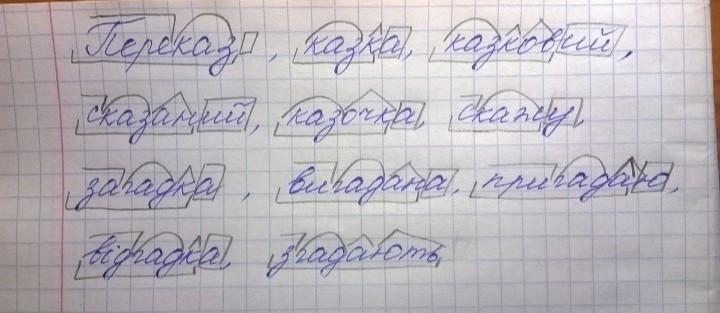 Переказ, казка, казковий,
сказаний, казочка, скажу
загадка, вигадана, пригадаю,
відгадка, згадають